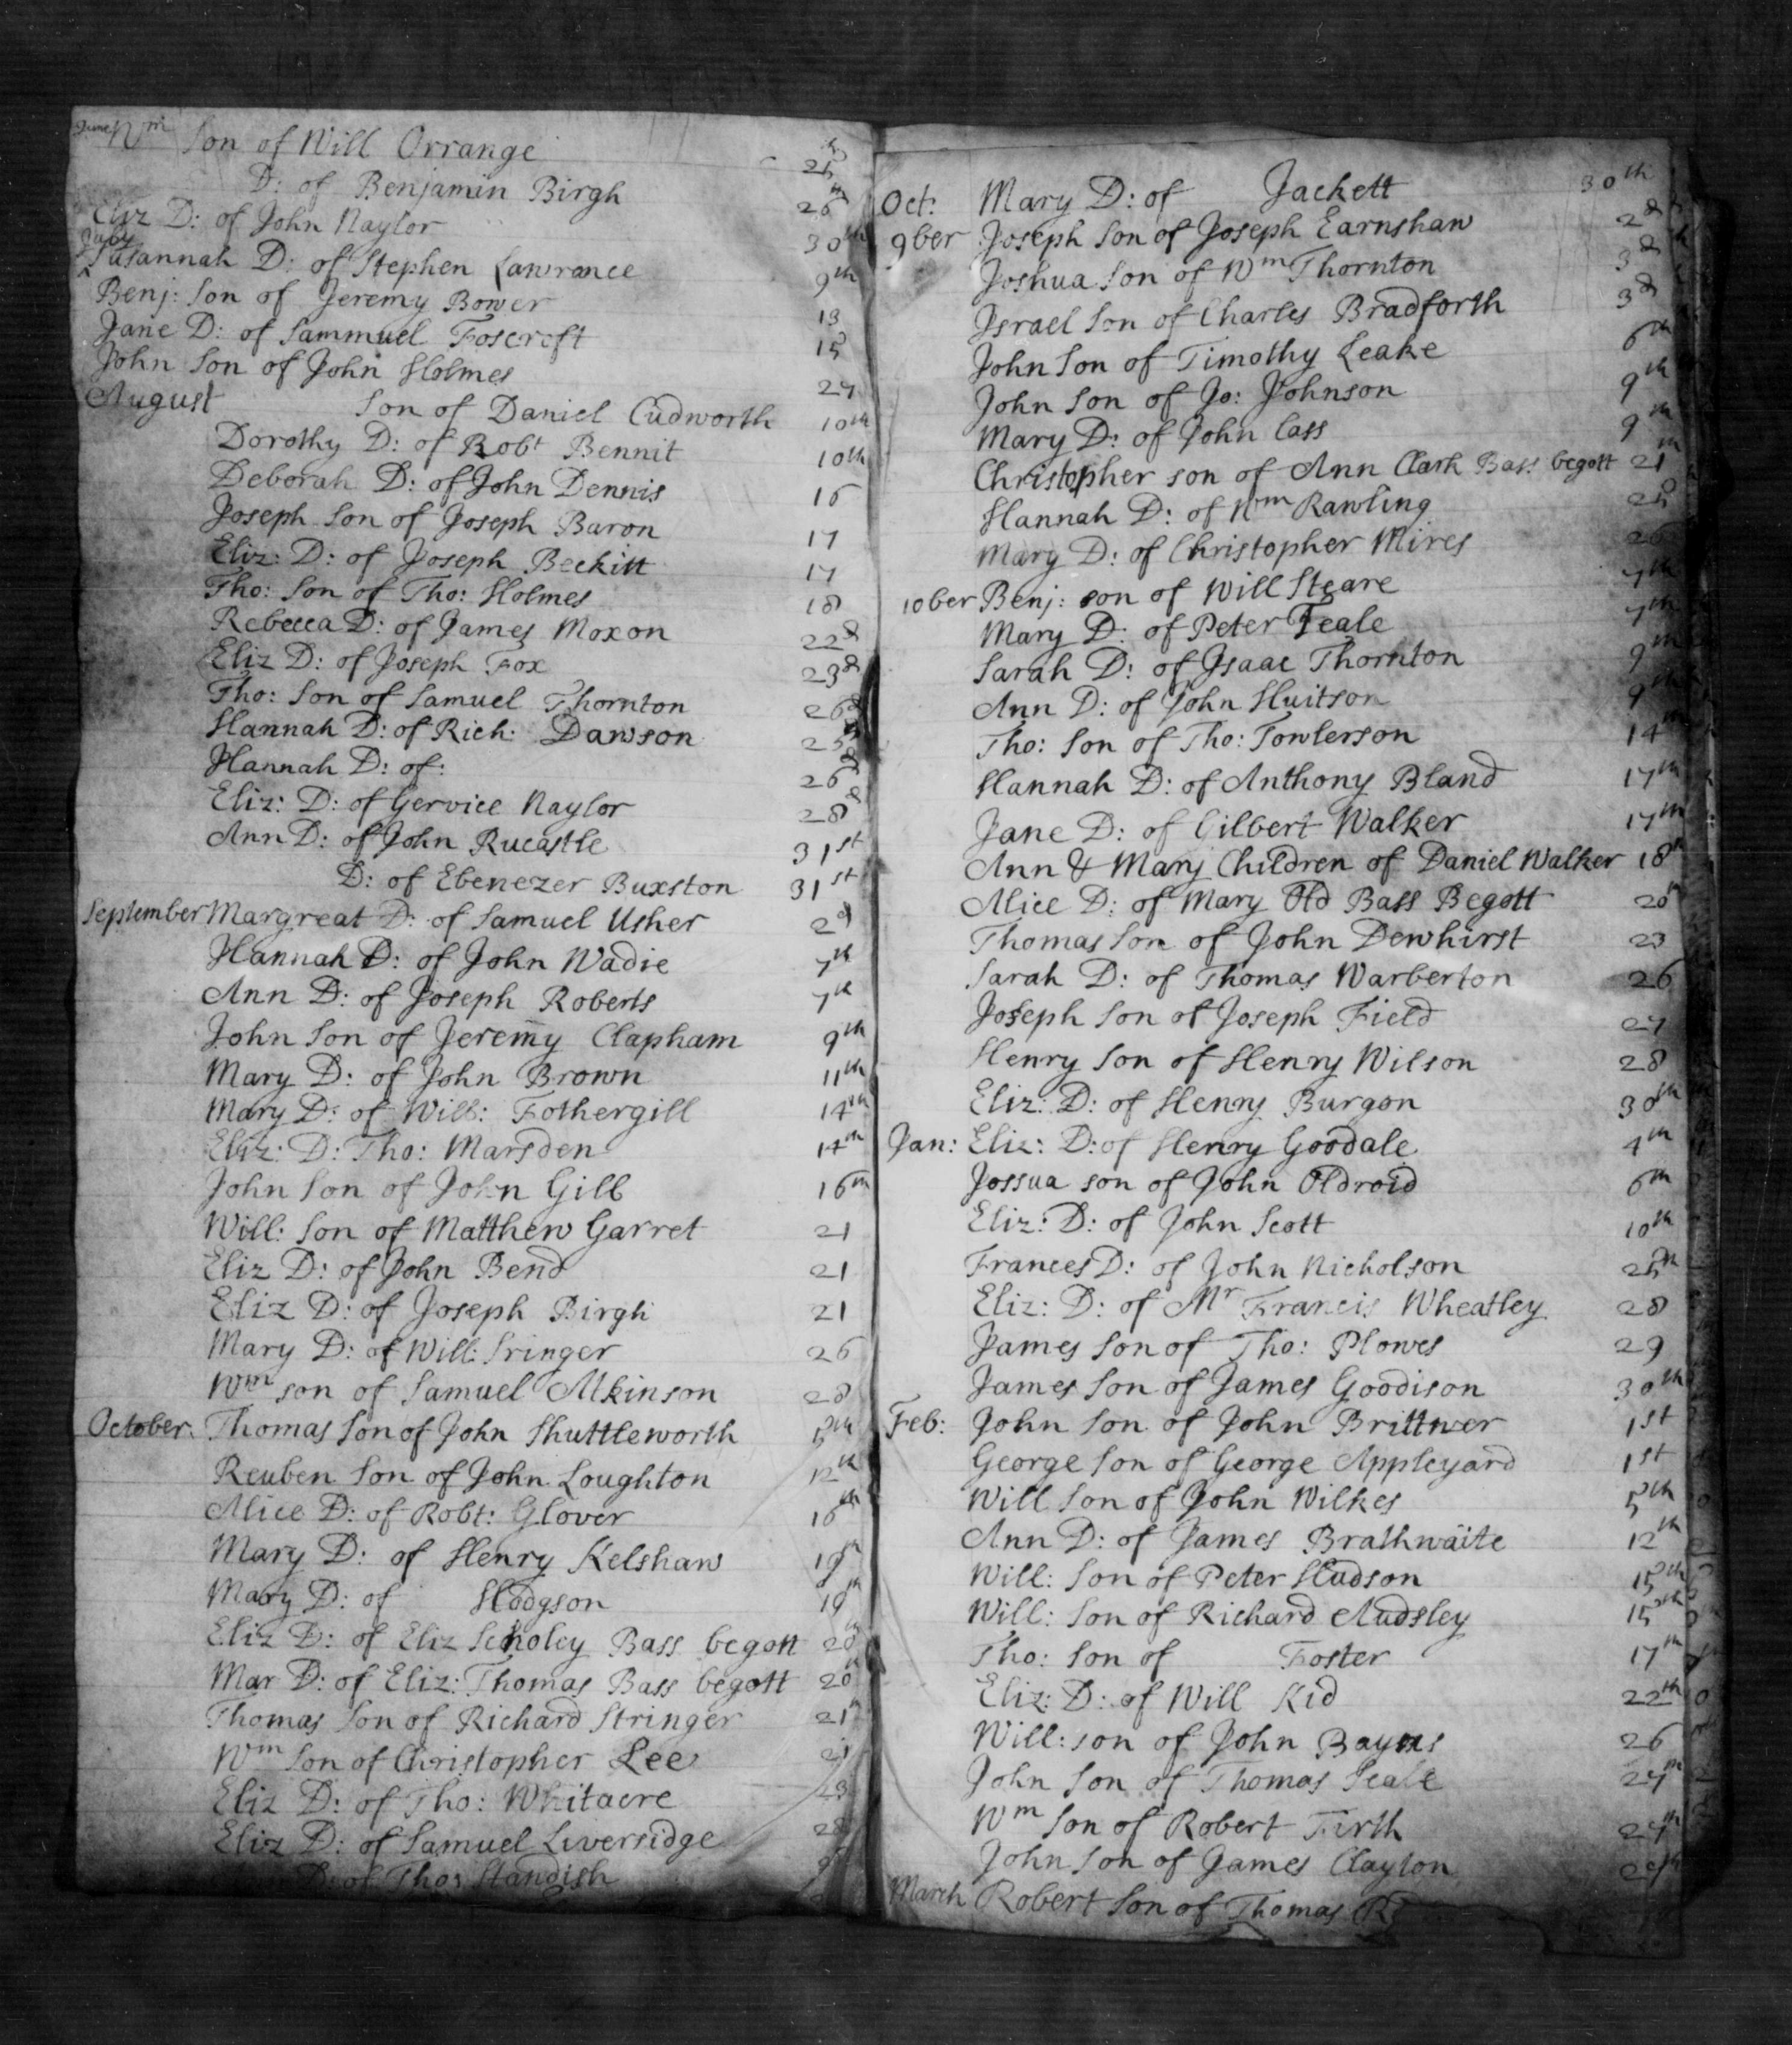 June Wm Son of Will Orrange 25th
D: of Benjamin Birgh 26th
Eliz D: of John Naylor 30th
July
Susannah D: of Stephen Lawrance 9th
Benj: Son of Jeremy Bower 13
Jane D: of Sammuel Foscroft 15
John Son of John Holmes 27
August Son of Daniel Cudworth 10th
Dorothy D: of Robt Bennit 10th
Deborah D: of John Dennis 16
Joseph Son of Joseph Baron 17
Eliz: D: of Joseph Beckitt 17
Tho: Son of Tho: Holmes 18
Rebecca D: of James Moxon 22d
Eliz D: of Joseph Fox 23d
Tho: Son of Samuel Thornton 26d
Hannah D: of Rich: Dawson 25
Hannah D: of: 26d
Eliz: D: of Gervice Naylor 28d
Ann D: of John Rucastle 31st
D: of Ebenezer Buxston 31st
September Margreat D: of Samuel Usher 2d
Hannah D: of John Wadie 7th
Ann D: of Joseph Roberts 7th
John Son of Jeremy Clapham 9th
Mary D: of John Brown 11th
Mary D: of Will: Fothergill 14th
Eliz: D: Tho: Marsden 14th
John Son of John Gill 16th
Will: Son of Matthew Garret 21
Eliz D: of John Bend 21
Eliz D: of Joseph Birgh 21
Mary D: of Will: Sringer 26
Wm son of Samuel Atkinson 28
October: Thomas Son of John Shuttleworth 5th
Reuben Son of John Loughton 12th
Alice D: of Robt: Glover 16th
Mary D: of Henry Kelshaw 19th
Mary D: of Hodgson 19th
Eliz D: of Eliz Scholey Bass begott 20th
Mar D: of Eliz: Thomas Bass begott 20th
Thomas Son of Richard Stringer 21th
Wm Son of Christopher Lee 21
Eliz D: of Tho: Whitacre 23
Eliz D: of Samuel Liversidge 28
D: of Tho: Standish
Oct: Mary D: of Jackett 30th
9ber Joseph Son of Joseph Earnshaw 2d
Joshua Son of Wm Thornton 3d
Israel Son of Charles Bradforth 3d
John Son of Timothy Leake 6th
John Son of Jo: Johnson 9th
Mary D: of John Cass 9th
Christopher son of Ann Clark Bass begott 21th
Hannah D: of Wm Rawling 25
Mary D: of Christopher Mires 26
10ber Benj: son of Will Steare 7th
Mary D: of Peter Teale 7th
Sarah D: of Isaac Thornton 9th
Ann D: of John Huitson 9th
Tho: Son of Tho: Towlerson 14th
Hannah D: of Anthony Bland 17th
Jane D: of Gilbert Walker 17th
Ann & Mary Children of Daniel Walker 18th
Alice D: of Mary Old Bass Begott 20th
Thomas Son of John Dewhirst 23
Sarah D: of Thomas Warberton 26
Joseph Son of Joseph Field 27
Henry Son of Henry Wilson 28
Eliz: D: of Henry Burgon 30th
Jan: Eliz: D: of Henry Goodale 4th
Jossua son of John Oldroid 6th
Eliz: D: of John Scott 10th
Frances D: of John Nicholson 25th
Eliz: D: of Mr Francis Wheatley 28
James Son of Tho: Plowes 29
James Son of James Goodison 30th
Feb: John Son of John Brittner 1st
George Son of George Appleyard 1st
Will Son of John Wilkes 5th
Ann D: of James Brathwaite 12th
Will: Son of Peter Hudson 15th
Will: Son of Richard Audsley 15th
Tho: Son of Foster 17th
Eliz: D: of Will Kid 22th
Will: son of John Baynes 26
John Son of Thomas Seale 27th
Wm Son of Robert Firth 27th
John Son of James Clayton 27th
March Robert Son of Thomas